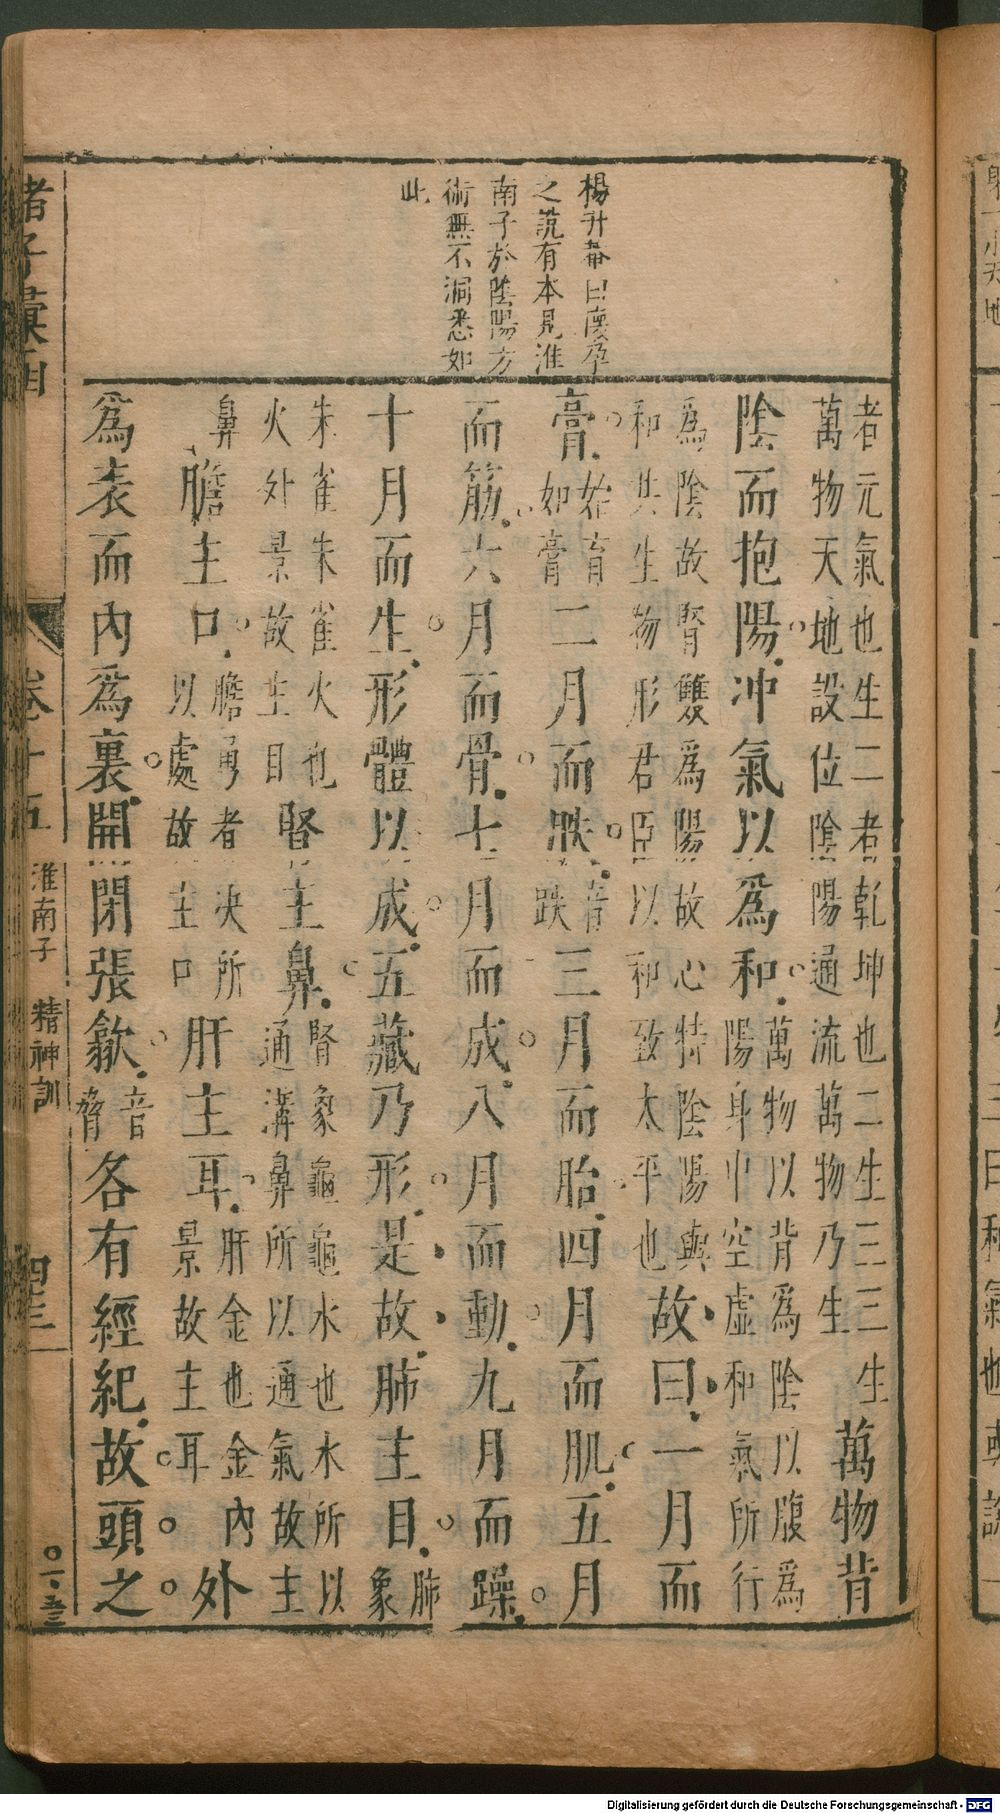 楊升菴曰懷孕
之說有本見淮
南子於陰陽方
術無不洞悉如
此
者元氣也生二者乾坤也二生三三生
萬物天地設位陰陽通流萬物乃生
萬物背
陰而抱陽冲氣以爲和
萬物以背爲陰以腹爲
陽身中空虛和氣所行
爲陰故腎雙爲陽故心特陰陽與
和共生物形君臣以和致太平也
故曰一月而
膏
始育
如膏
二月而胅
音
跌
三月而胎四月而肌五月
而筋六月而骨七月而成八月而動九月而躁
十月而生形體以成五藏乃形是故肺主目
肺
象
朱雀朱雀火也
火外景故主目
腎主鼻
腎象龜龜水也水所以
通溝鼻所以通氣故主
鼻
膽主口
膽勇者決所
以處故主口
肝主耳
肝金也金內
景故主耳
外
爲表而內爲裏開閉張歙
音
脅
各有經紀故頭之
諸子彙函
卷十五
淮南子
精神訓
四三
Digitalisierung gefördert durch die Deutsche Forschungsgemeinschaft - DFG